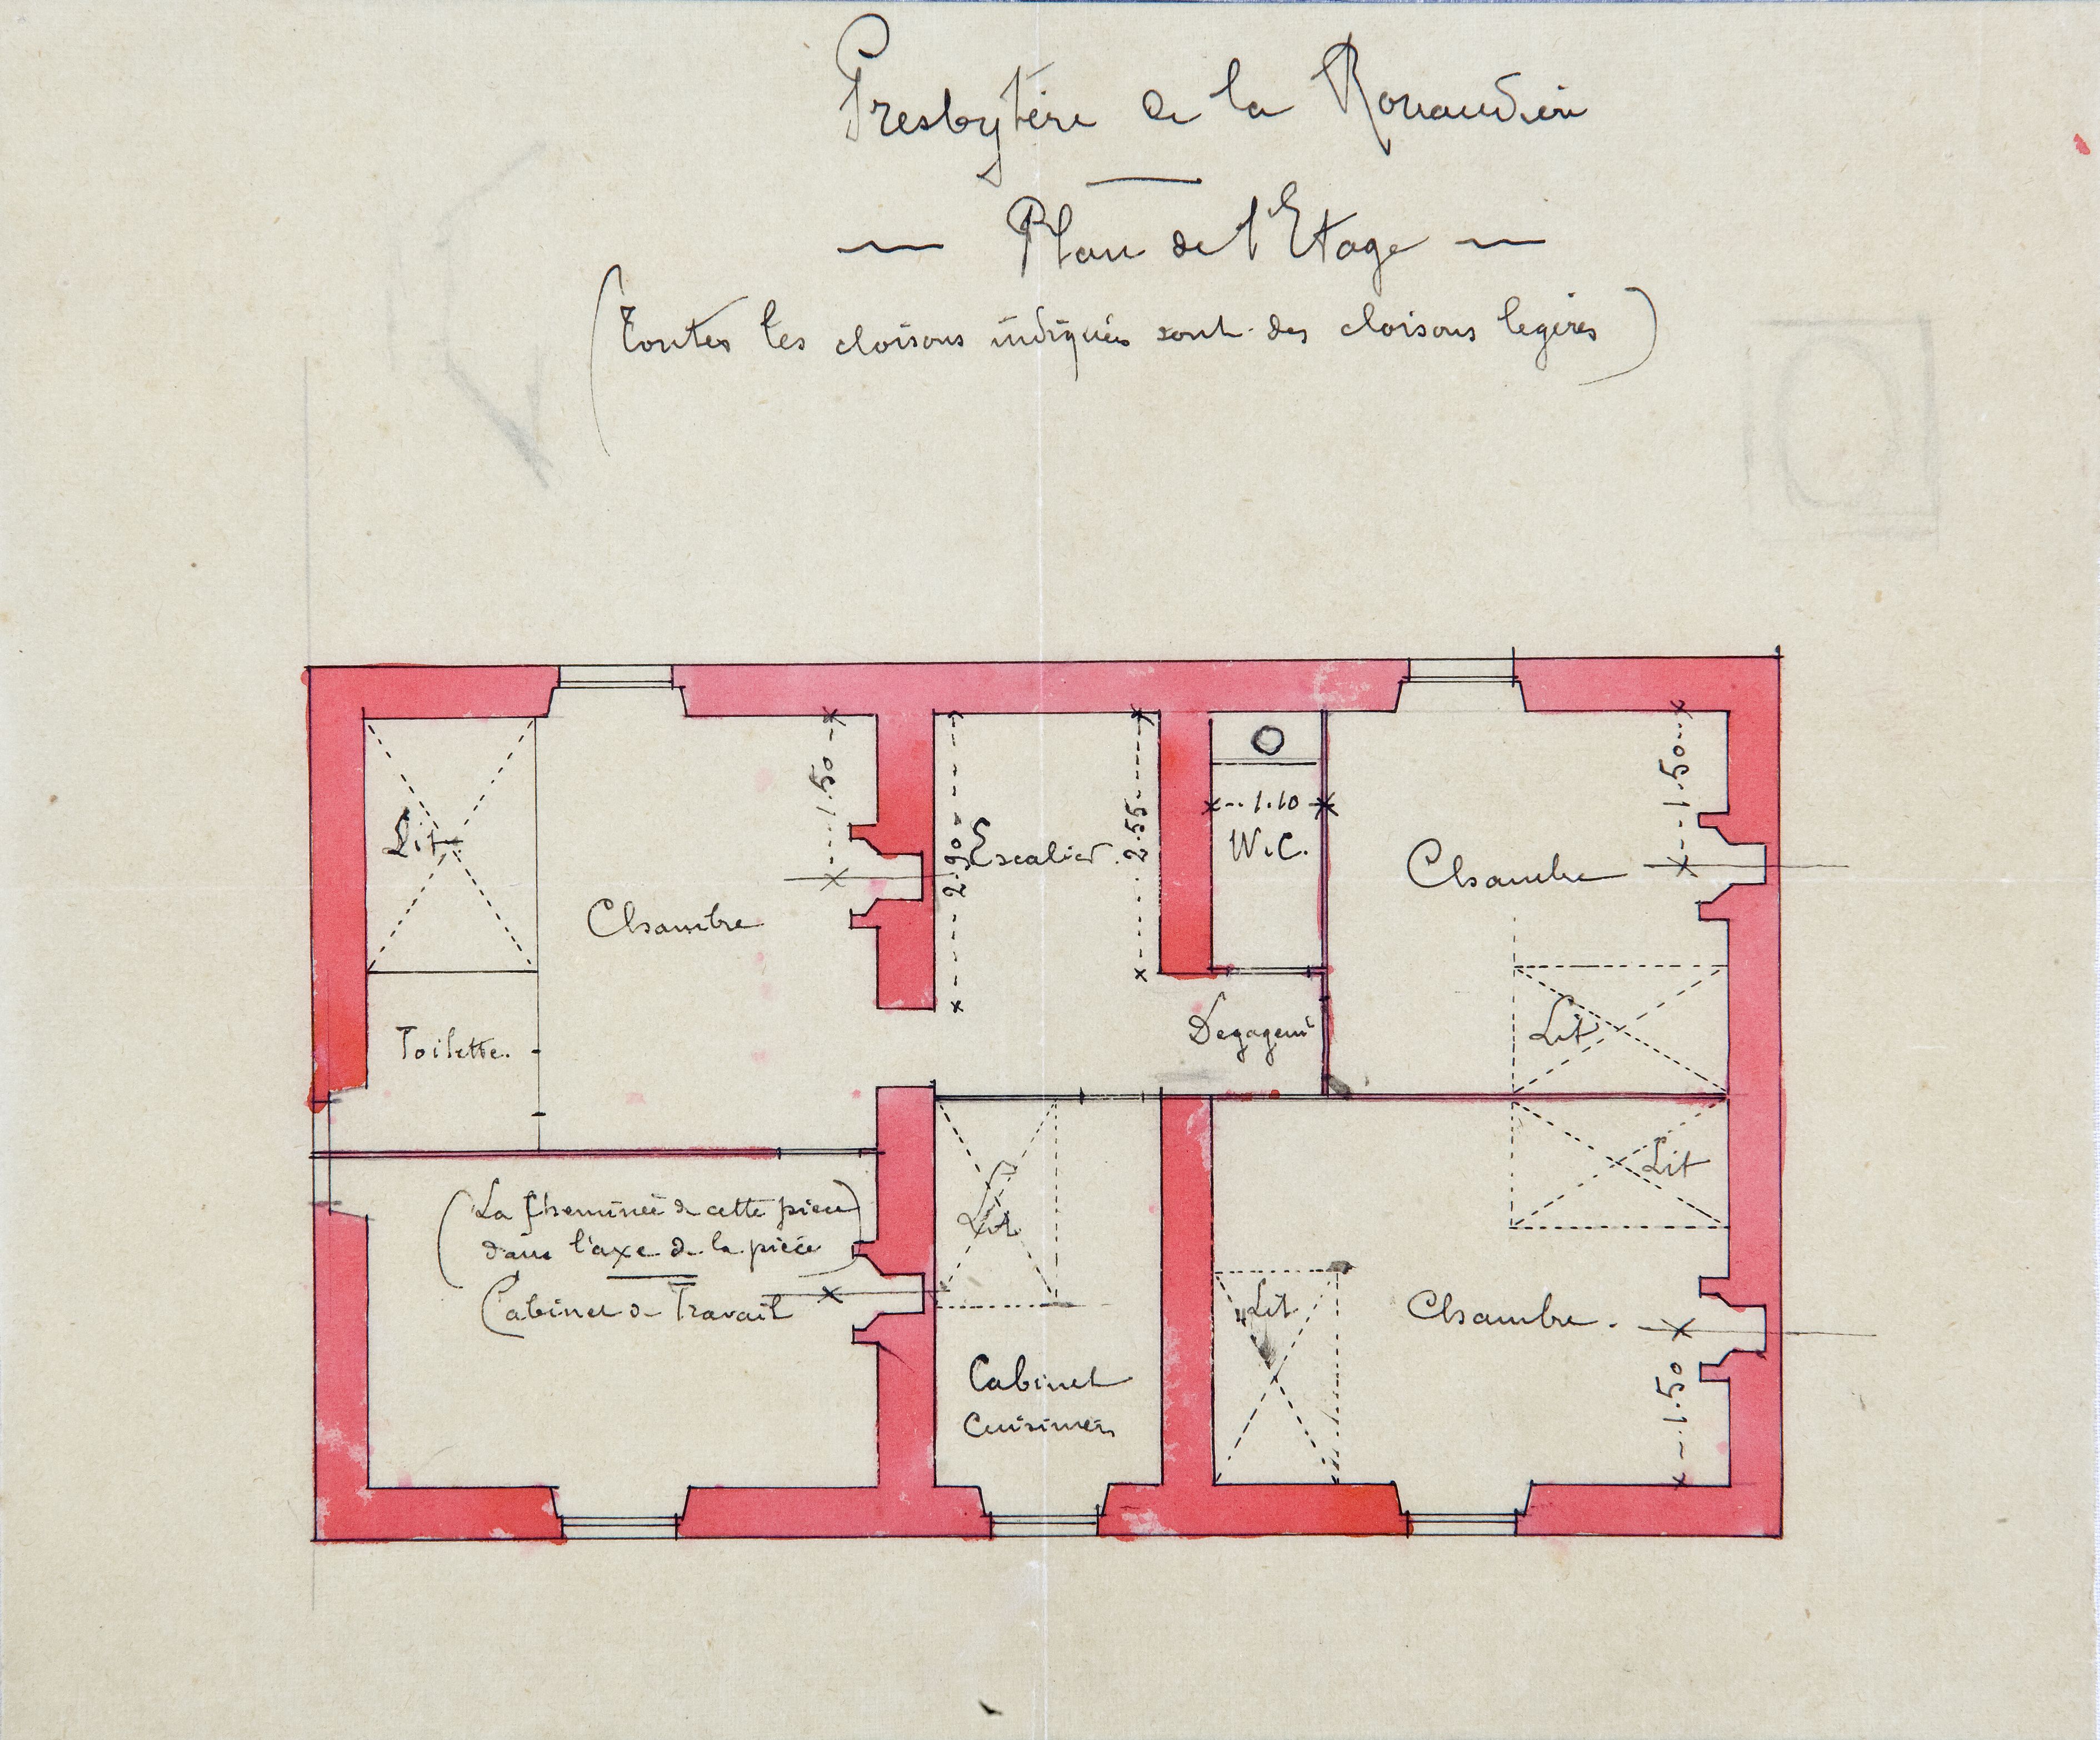 Presbytère de la Rouaudière
Plan de l'Etage
(toutes les cloisons indiquées sont des cloisons légères)
1.50
Lit
Chambre
Toilette.
2.90
Escalier.
2.55
1.10
W.C.
Dégagemt
1.50
Chambre
Lit
Lit
(La cheminée de cette pièce
dans l'axe de la pièce)
Cabinet de Travail
Lit
Cabinet
Lit
Chambre.
1.50